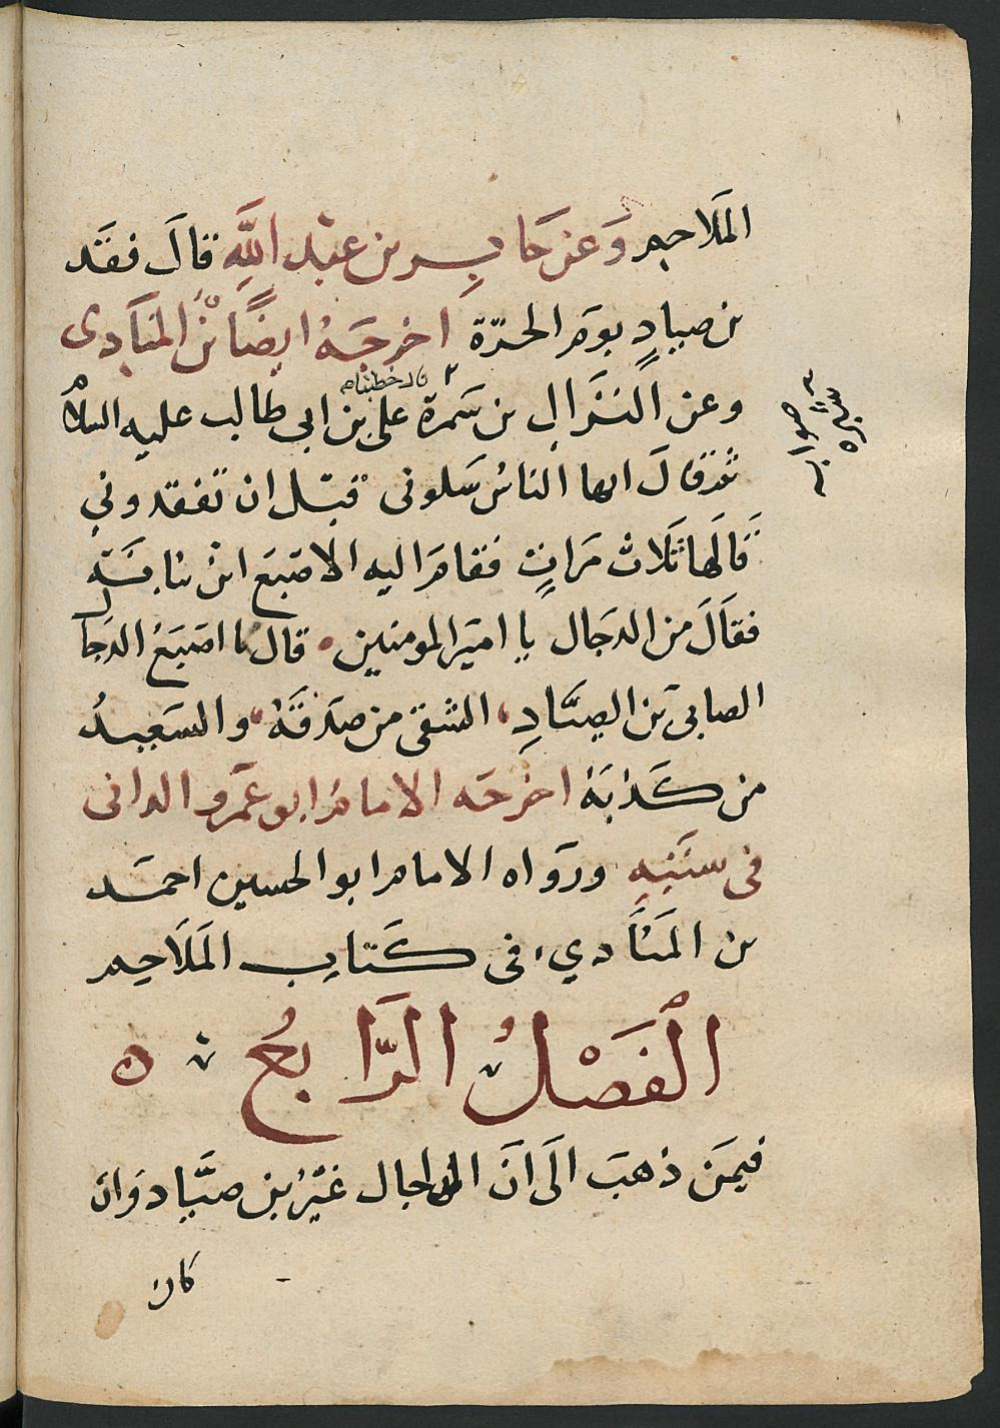 المَلَاحِم وَعَن جَابِر بن عبْد اللَّهِ قالَ فقَد
بن صيادٍ يومَ الحرّة اخرجَهُ ايضًا بْنُ المنَادى
وعن النَزَّال بن سَمُرة قال خطبنا على بن ابى طالب عليه السلام
ثم قالَ ايها الناسُ سَلونى قبْل ان تفقدونِي
قَالَهَا ثَلاث مَراتٍ فقامَ اليه الاصْبَغ ابنُ نباتَة
فقَالَ من الدجَال يا اميَر المومنين قال يا اصْبَغُ الدَجال
الصابى بَن الصيَّادِ، الشقى من صدَّقَهُ والسَعيدُ
من كَذبَهُ اخرجَه الامامُ ابو عَمرو الدانى
فى سنَنِهِ ورَواه الامام ابو الحسين احمَد
بن المَنَادي، فى كَتابِ المَلَاحِم
الْفَصْلُ الرَّابعُ ه
فيمَن ذهبَ الَى انَ الدجال غَيْرُ بن صيَّاد وَان
كان
سبره
صوابه